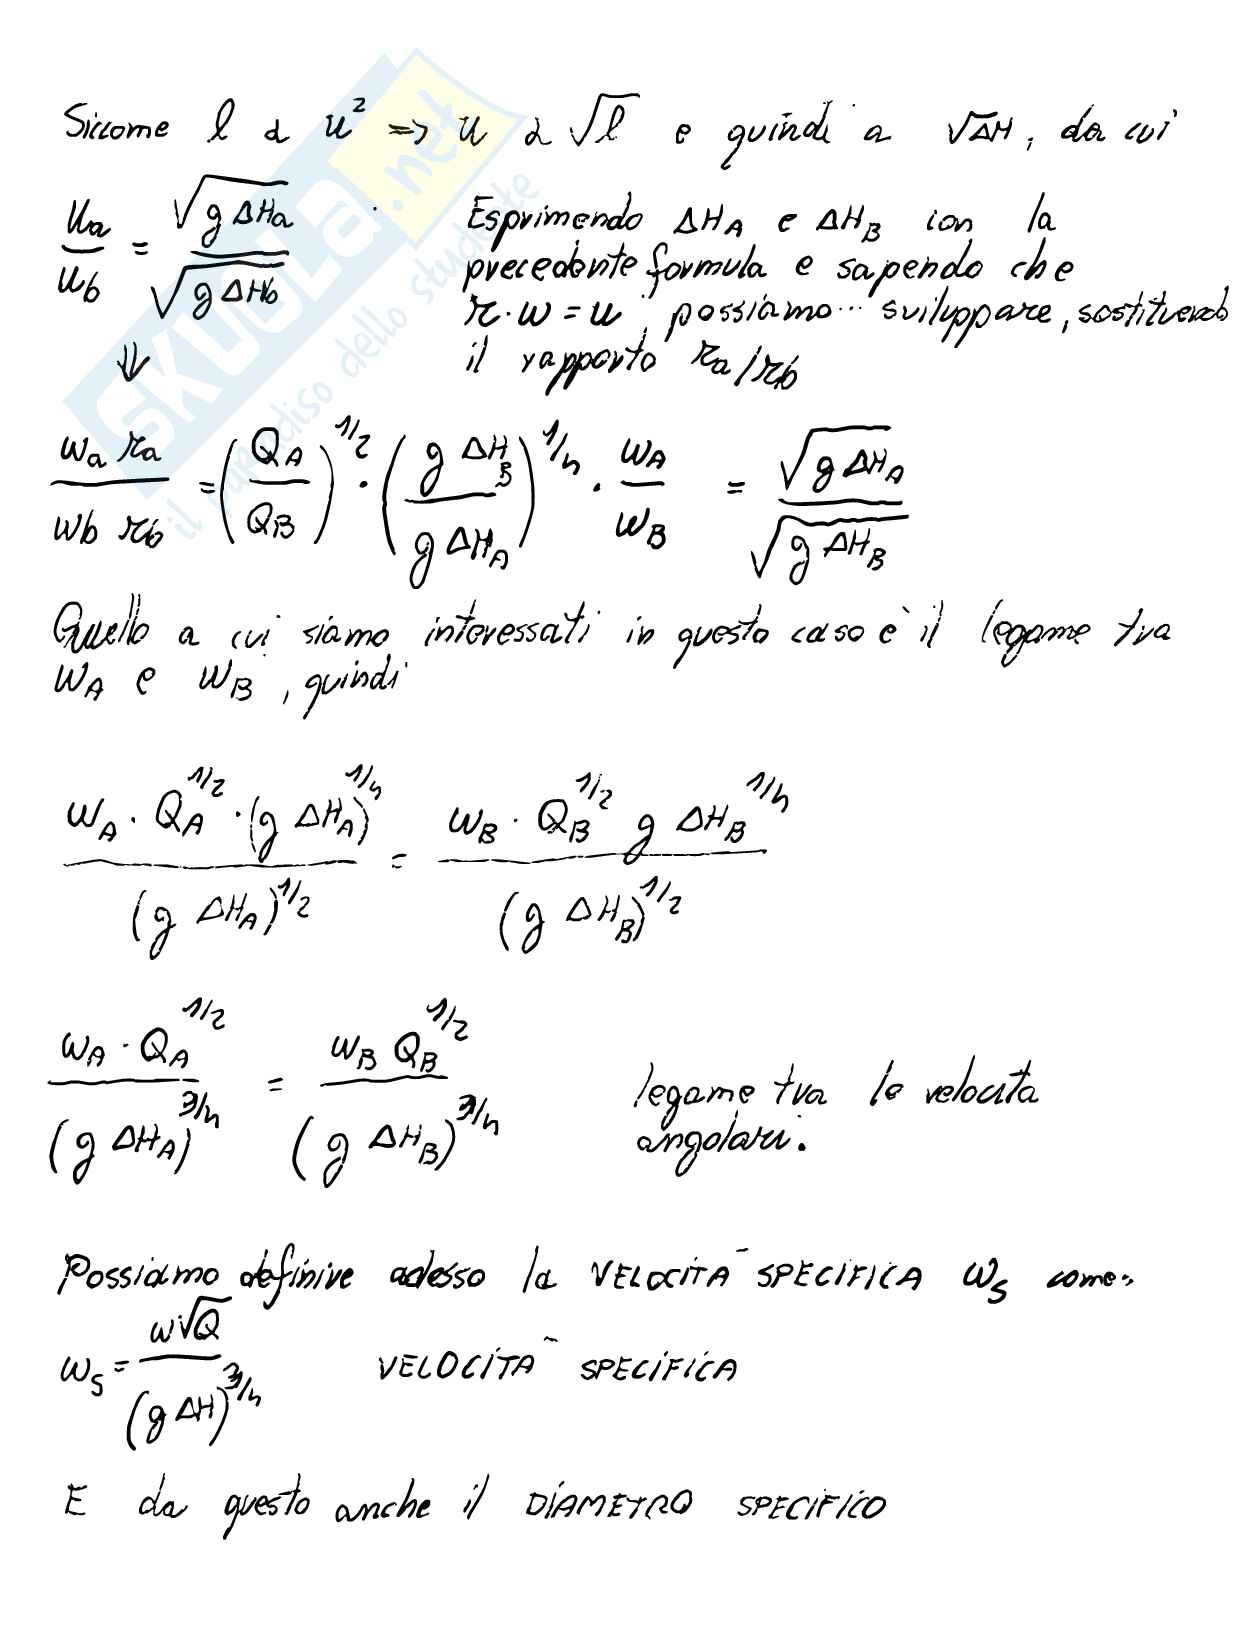 Siccome l α u² => u α √l e quindi a √ΔH, da cui
ua/ub = √(g ΔHa) / √(g ΔHb)
Esprimendo ΔH_A e ΔH_B con la
precedente formula e sapendo che
r·w = u, possiamo... sviluppare, sostituendo
il rapporto ra/rb
⇓
(wa ra)/(wb rb) = (Q_A/Q_B)^1/2 · (g ΔH_B / g ΔH_A)^1/4 · w_A/w_B = √(g ΔH_A) / √(g ΔH_B)
Quello a cui siamo interessati in questo caso è il legame tra
w_A e w_B, quindi
w_A · Q_A^1/2 · (g ΔH_A)^1/4 / (g ΔH_A)^1/2 = w_B · Q_B^1/2 g ΔH_B^1/4 / (g ΔH_B)^1/2
w_A · Q_A^1/2 / (g ΔH_A)^3/4 = w_B Q_B^1/2 / (g ΔH_B)^3/4
legame tra le velocità
angolari.
Possiamo definire adesso la VELOCITÀ SPECIFICA w_s come:
w_s = w√Q / (g ΔH)^3/4 VELOCITÀ SPECIFICA
E da questo anche il DIAMETRO SPECIFICO
SKUOLA.net
il paradiso dello studente